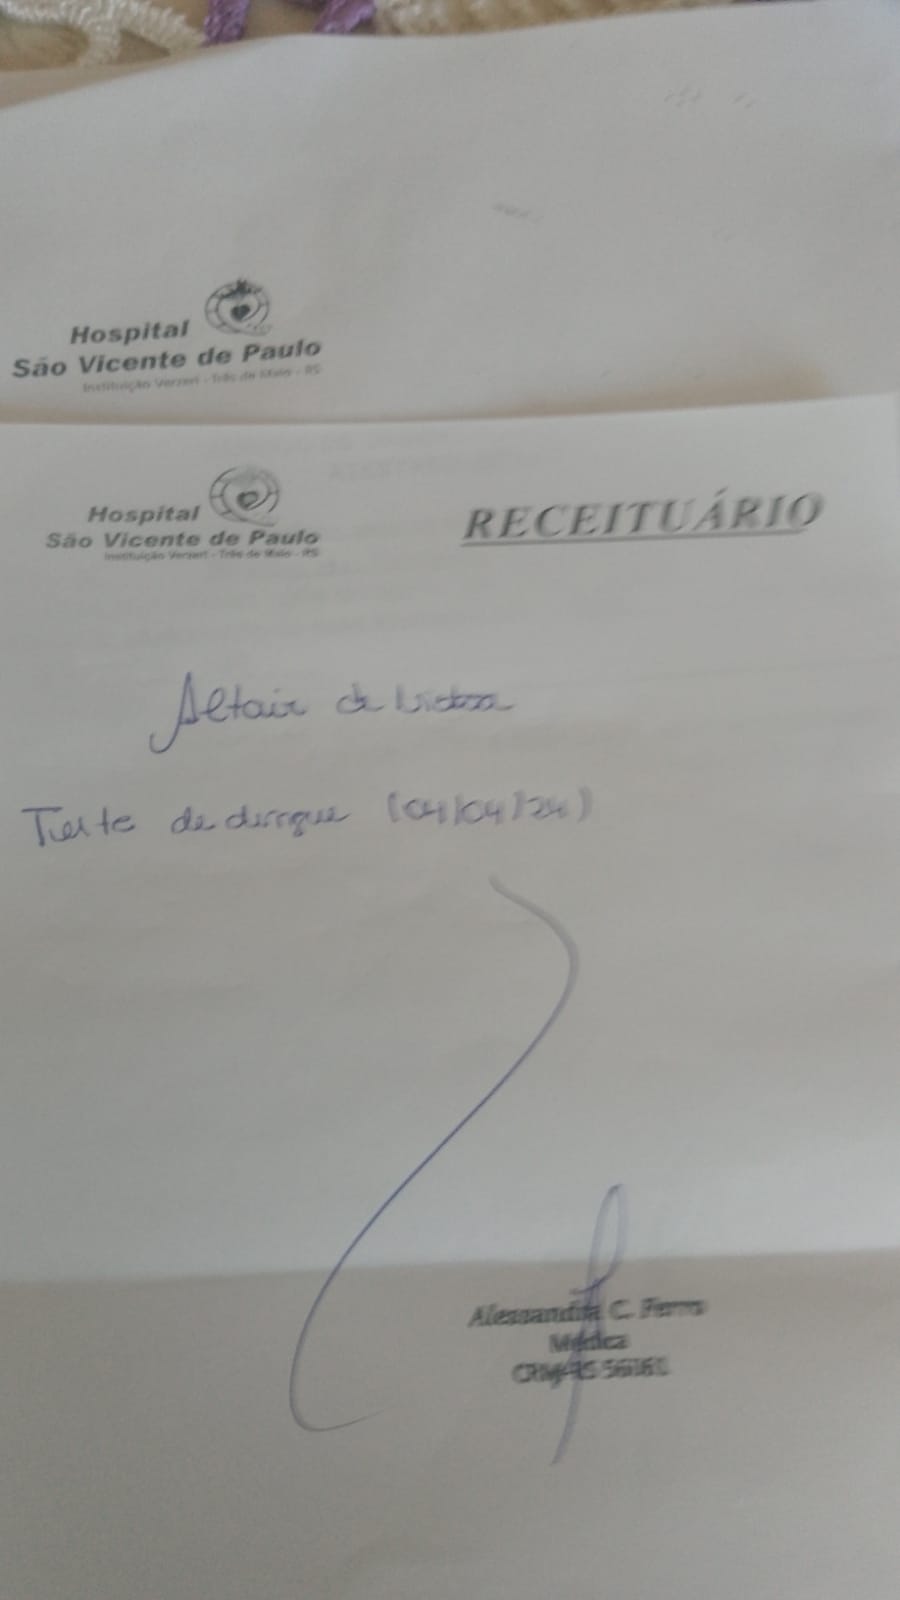 Hospital
São Vicente de Paulo
Instituição Verzeri - Três de Maio - RS
Hospital
São Vicente de Paulo
Instituição Verzeri - Três de Maio - RS
RECEITUÁRIO
Altair de
Teste de dengue (04/04/24)
Alessandra C. Ferro
Médica
CRM-RS